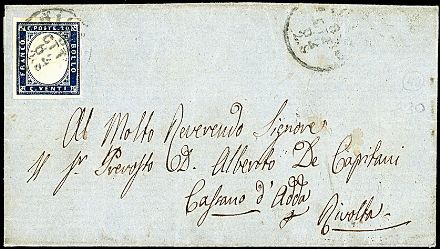 C. POSTE. 20
FRANCO
BOLLO
C. VENTI
Al Molto Reverendo Signore
Il Sr. Prevosto D. Alberto De Capitani
Cassano d'Adda
Rivolta